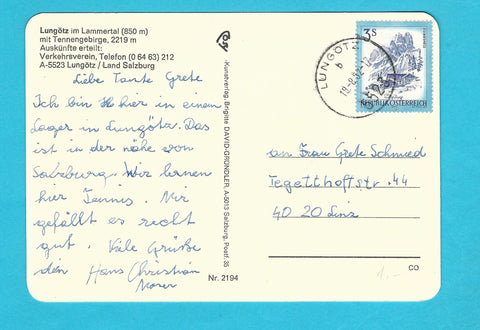 Lungötz im Lammertal (850 m)
mit Tennengebirge, 2219 m
Auskünfte erteilt:
Verkehrsverein, Telefon (0 64 63) 212
A-5523 Lungötz / Land Salzburg
Liebe Tante Grete
Ich bin hier in einem
Lager in Lungötz. Das
ist in der nähe von
Salzburg. Wir lernen
hier Tennis. Mir
gefällt es recht
gut. Viele Grüße
dein Hans Christian
Moser
Kunstverlag Brigitte DAVID-GRÜNDLER, A-5013 Salzburg, Postf. 35
Nr. 2194
3S
REPUBLIK ÖSTERREICH
LUNGÖTZ
b
an Frau Grete Schmied
Tegetthoffstr. 44
40 20 Linz
1.-
CO